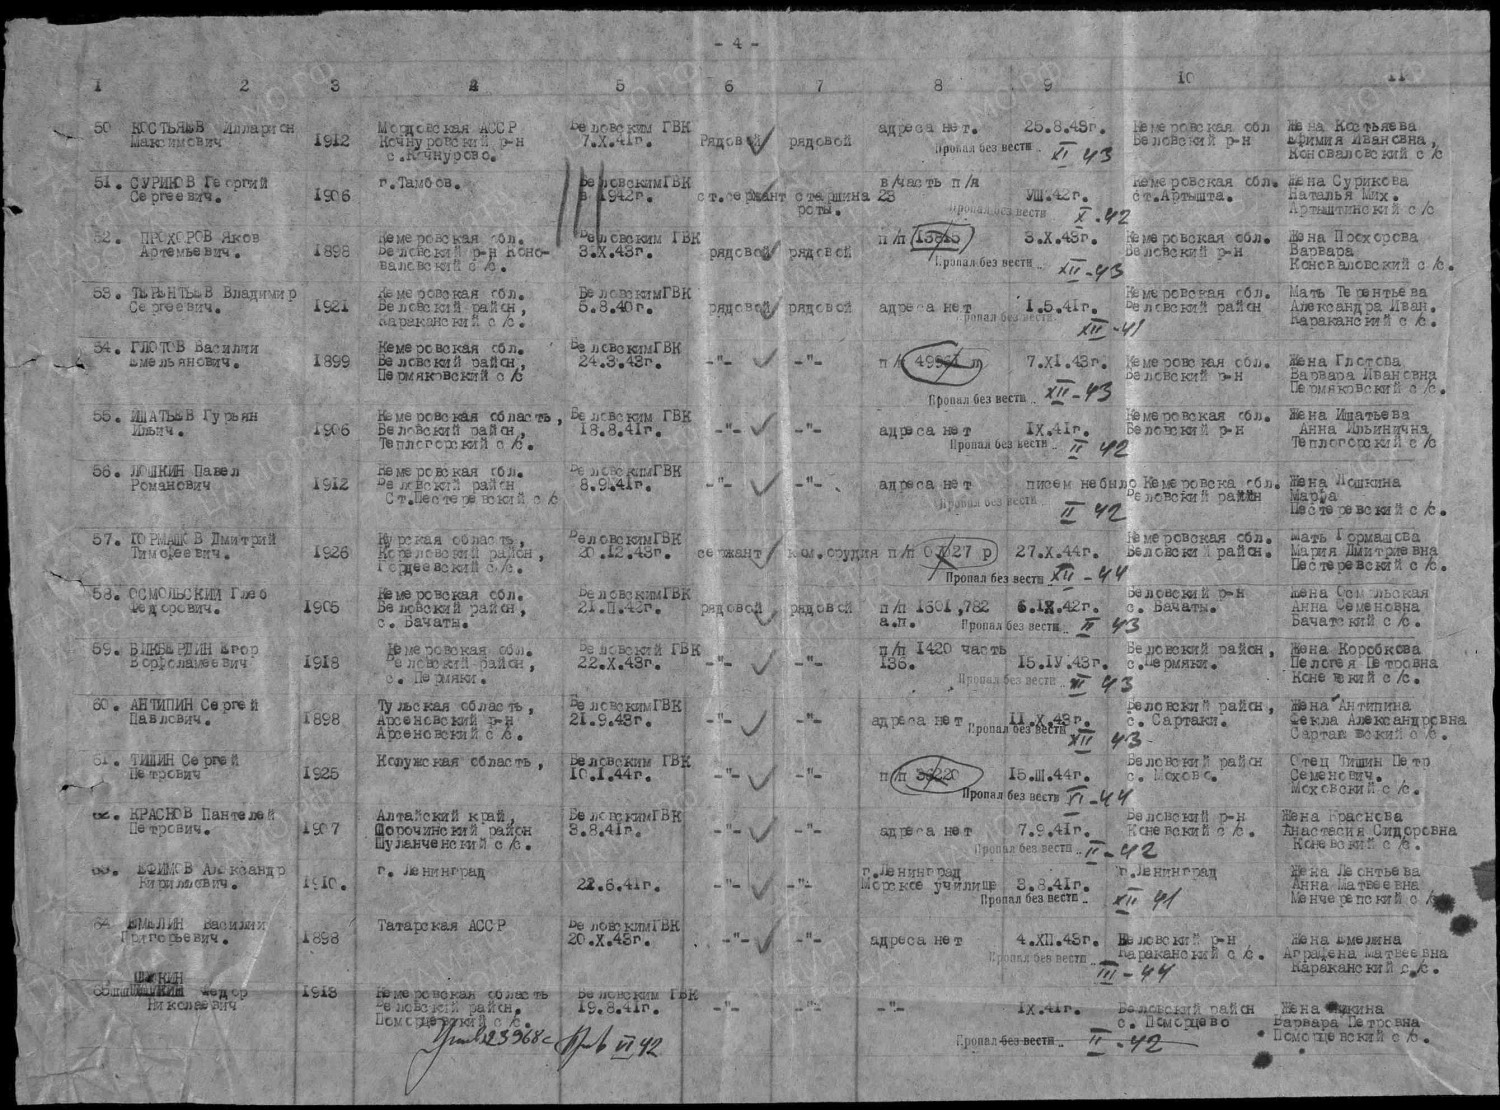 - 4 -
1 2 3 4 5 6 7 8 9 10 11
50 КОСТЬЯЕВ Илларион Максимович 1912 Мордовская АССР Кочнуровский р-н с.Кочнурово. Беловским ГВК 7.X.41г. Рядовой рядовой адреса нет. 25.8.43г. Кемеровская обл Беловский р-н Жена Костьяева Ефимия Ивановна, Коноваловский с/с
Пропал без вести XI 43
51. СУРИКОВ Георгий Сергеевич. 1906 г.Тамбов. БеловскимГВК в 1942г. ст.сержант старшина роты. в/часть п/я 23 УШ.42г. Кемеровская обл. ст.Артышта. Жена Сурикова Наталья Мих. Артыштинский с/с
Пропал без вести X-42
52. ПРОХОРОВ Яков Артемьевич. 1898 Кемеровская обл. Беловский р-н Коно-валовский с/с. Беловским ГВК 3.X.43г. рядовой рядовой п/п 13815 3.X.43г. Кемеровская обл. Беловский р-н Жена Прохорова Варвара Коноваловский с/с.
Пропал без вести .. XII-43
53. ТЕРЕНТЬЕВ Владимир Сергеевич. 1921 Кемеровская обл. Беловский район, Караканский с/с. БеловскимГВК 5.8.40г. рядовой рядовой адреса нет 1.5.41г. Кемеровская обл. Беловский район Мать Терентьева Александра Иван. Караканский с/с.
Пропал без вести XII-41
54. ГЛОТОВ Василий Емельянович. 1899 Кемеровская обл. Беловский район, Пермяковский с/с БеловскимГВК 24.3.43г. -"- -"- п/п 7.XI.43г. Кемеровская обл. Беловский р-н Жена Глотова Варвара Ивановна Пермяковский с/с.
Пропал без вести .. XII-43
55. ИШАТЬЕВ Гурьян Ильич. 1906 Кемеровская область, Беловский район, Теплогорский с/с. Беловским ГВК 18.8.41г. -"- -"- адреса нет IX.41г. Кемеровская обл. Беловский р-н Жена Ишатьева Анна Ильинична Теплогорский с/с.
Пропал без вести .. II 42
56. ЛОШКИН Павел Романович 1912 Кемеровская обл. Беловский район Ст.Пестеревский с/с БеловскимГВК 8.9.41г. -"- -"- адреса нет писем небыло Кемеровска обл. Беловский район Жена Лошкина Марфа Пестеревский с/с.
Пропал без вести II 42
57. ГОРМАШОВ Дмитрий Тимофеевич. 1926 Курская область, Кореловский район, Гордеевский с/с. БеловскимГВК 20.12.43г. сержант ком.орудия п/п 27 р 27.X.44г. Кемеровская обл. Беловский район. Мать Гормашова Мария Дмитриевна Пестеревский с/с.
Пропал без вести .. XII-44
58. ОСМОЛЬСКИЙ Глеб Федорович. 1905 Кемеровская обл. Беловский район, с. Бачаты. БеловскимГВК 21.П.42г. рядовой рядовой п/п 1601,782 а.п. 6.IX.42г. Беловский р-н с. Бачаты. Жена Осмольская Анна Семеновна Бачатский с/с.
Пропал без вести .. II 43
59. Егор Ворфоламеевич 1918 Кемеровская обл. Беловский район, с. Пермяки. Беловский ГВК 22.X.43г. -"- -"- п/п 1420 часть 136. 15.IУ.43г. Беловский район, с.Пермяки. Жена Коробкова Пелогея Петровна Коневский с/с.
Пропал без вести .. 43
60. АНТИПИН Сергей Павлович. 1898 Тульская область, Арсеновский р-н Арсеновский с/с. БеловскимГВК 21.9.43г. -"- -"- адреса нет 11.X.43г. Беловский район, с. Сартаки. Жена Антипина Фекла Александровна Сартаковский с/с.
Пропал без вести XII 43-
61. ТИШИН Сергей Петрович 1925 Колужская область, Беловским ГВК 10.1.44г. -"- -"- п/п 15.Ш.44г. Беловский район с. Мохово. Отец Тишин Петр Семенович. Моховский с/с.
Пропал без вести .. VI-44
62. КРАСНОВ Пантелей Петрович. 1907 Алтайский край, Шорочинский район Шуланченский с/с. БеловскимГВК 3.8.41г. -"- -"- адреса нет 7.9.41г. Беловский р-н Коневский с/с. Жена Краснова Анастасия Сидоровна Коневский с/с.
Пропал без вести .. II-42
63. ЕФИМОВ Александр Кириллович. 1910. г. Ленинград 22.6.41г. -"- -"- г.Ленинград Морское училище 3.8.41г. г.Ленинград Жена Леонтьева Анна Матвеевна Менчерепский с/с
Пропал без вести .. XII 41
64 ЕМЕЛИН Василий Григорьевич. 1898 Татарская АССР БеловскимГВК 20.X.43г. -"- -"- адреса нет 4.ХП.43г. Беловский р-н Караканский с/с. Жена Емелина Аграфена Матвеевна Караканский с/с.
Пропал без вести .. III-44
65 Федор Николаевич 1913 Кемеровская область Беловский район. Поморцевский с/с. Беловским ГВК 19.8.41г. -"- -"- -"- IX.41г. Беловский район с. Поморцево Жена Варвара Петровна Поморцевский с/с.
Пропал без вести .. II-42
VI 42